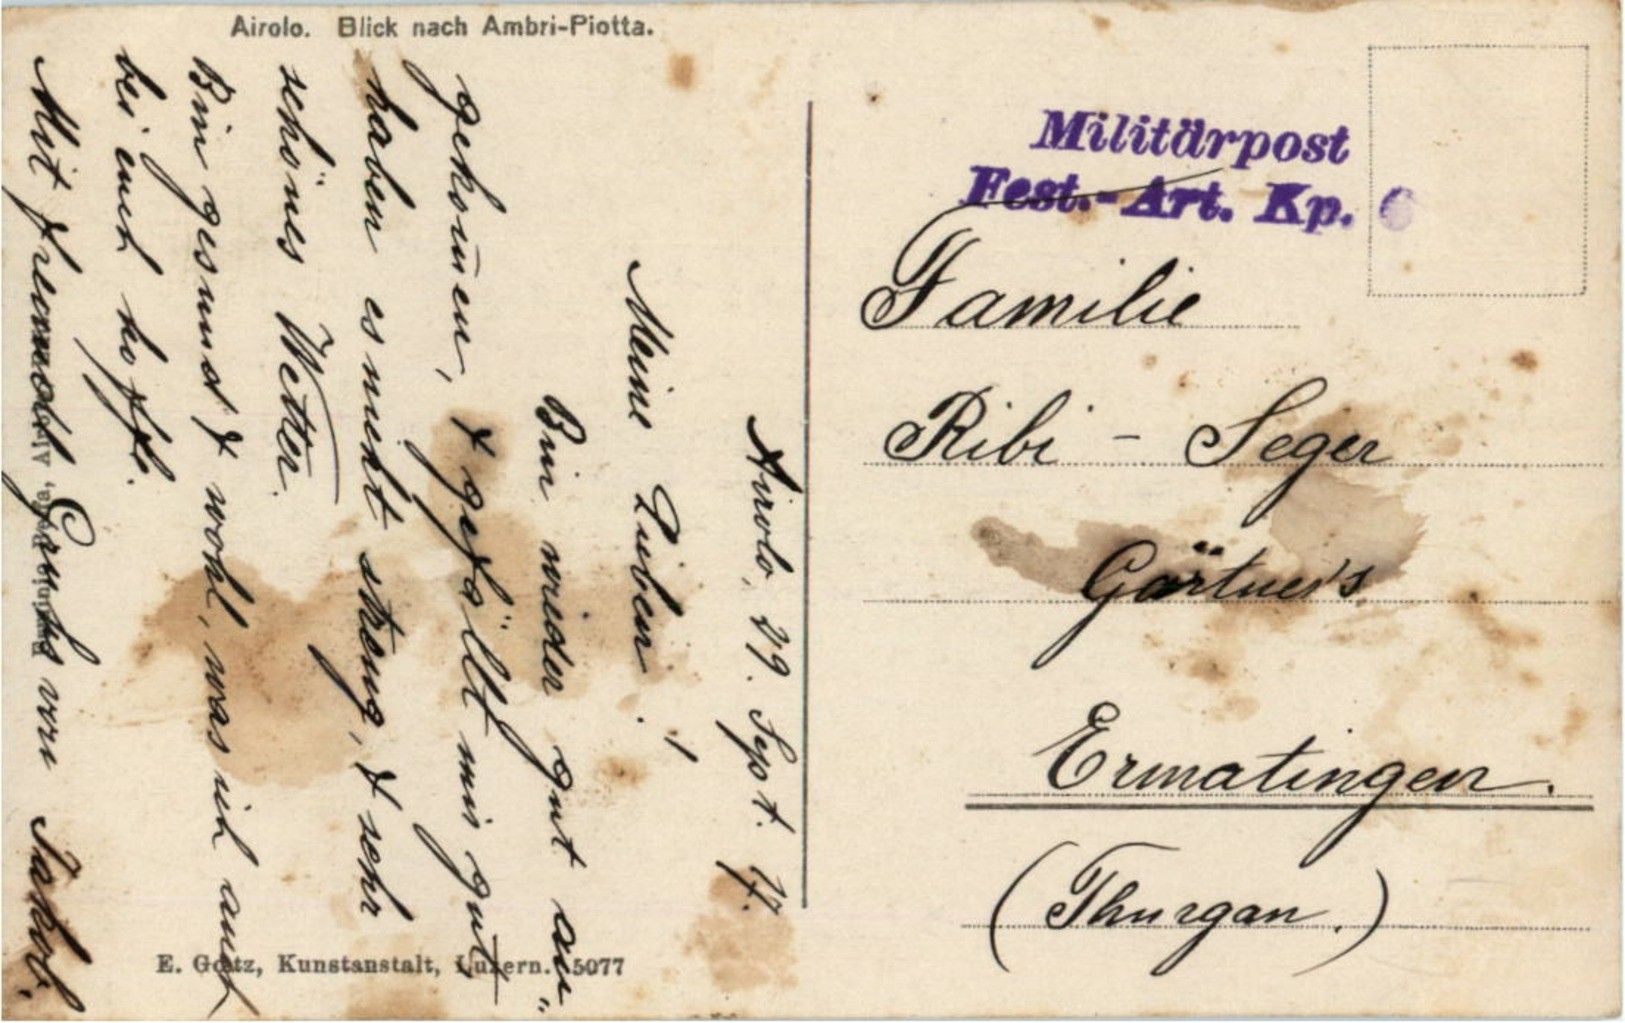 Airolo. Blick nach Ambri-Piotta.
Airolo, 29. Sept. 17.
Meine Lieben!
Bin wieder gut an„
gekom̅en, & gefällt mir gut,
haben es nicht streng, & sehr
schönes Wetter.
Bin gesund & wohl, was ich auch
bei euch hoffe.
Mit freundl. Gruss von Jakob.
E. Goetz, Kunstanstalt, Luzern. 5077
Militärpost
Fest.-Art. Kp.
Familie
Ribi - Seger
Gärtner's
Ermatingen.
(Thurgau.)